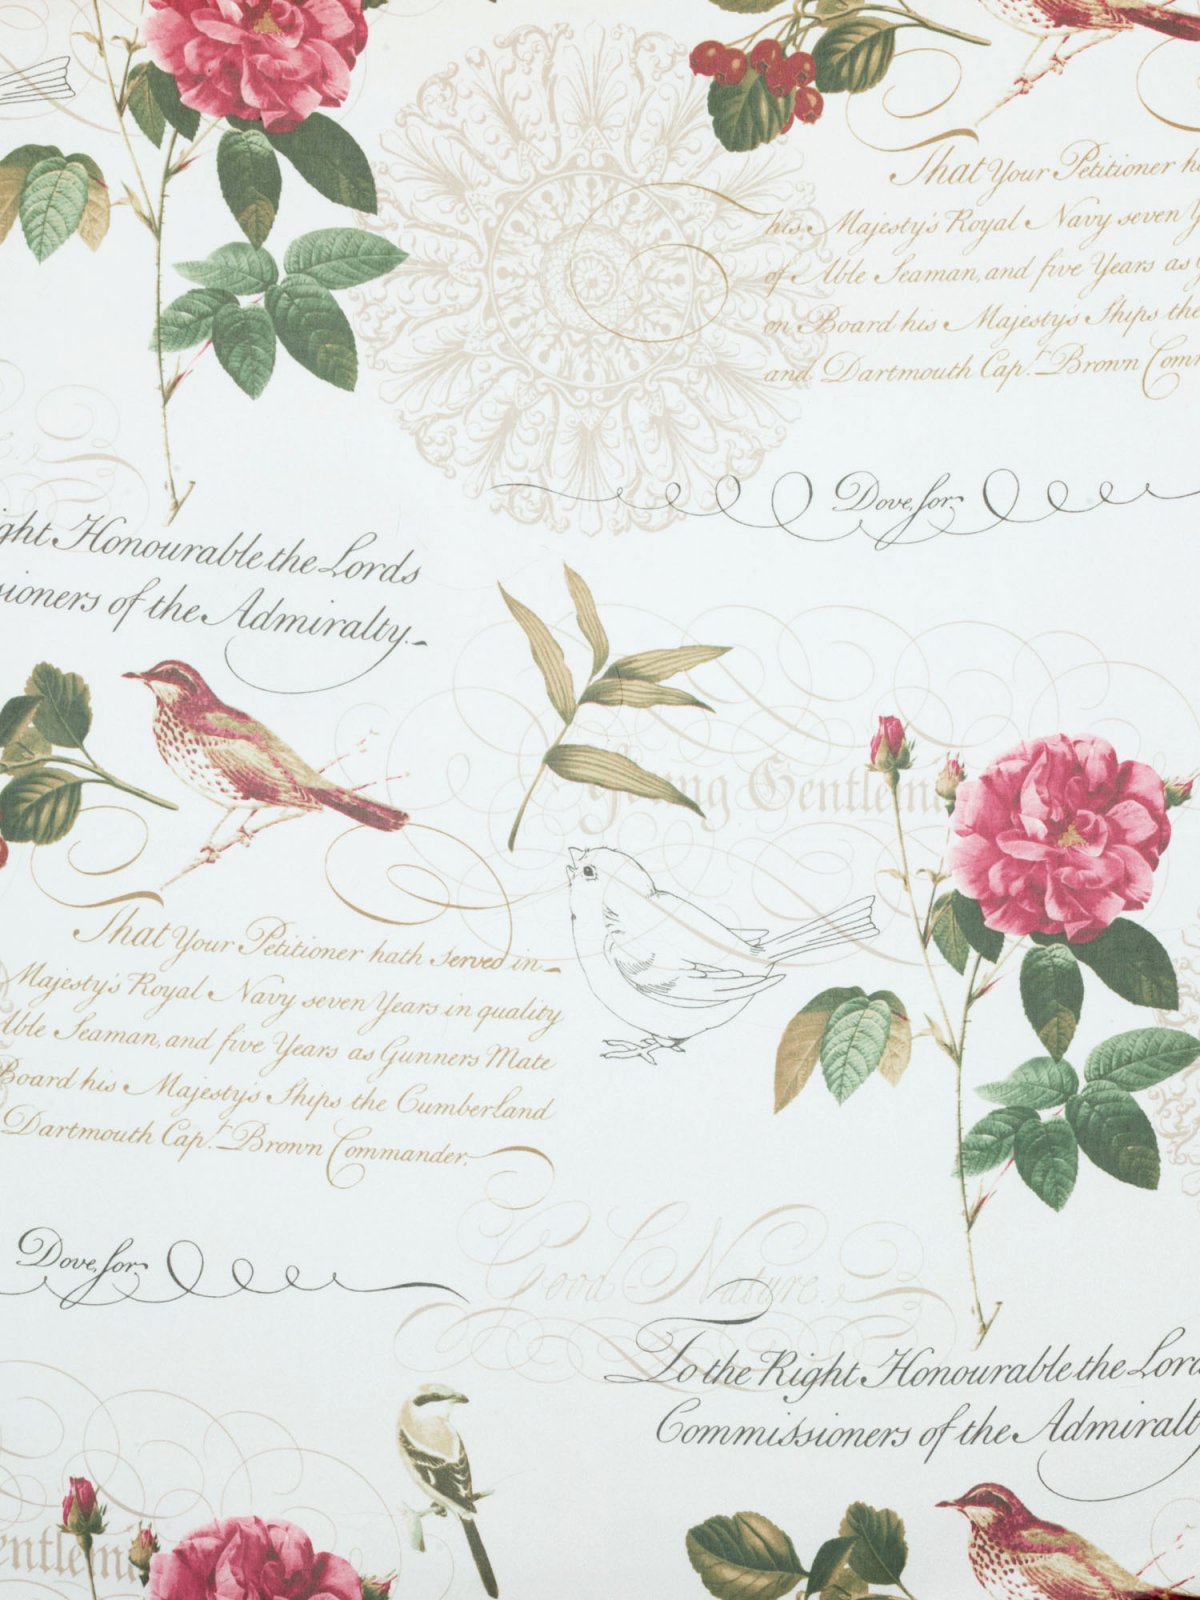 That Your Petitioner
his Majesty's Royal Navy seven
of Able Seaman, and five Years as
on Board his Majesty's Ships the
and Dartmouth Capt. Brown
Dove, for
Honourable the Lords
of the Admiralty.
Young Gentlem
That Your Petitioner hath served in
Majesty's Royal Navy seven Years in quality
Able Seaman, and five Years as Gunners Mate
Board his Majesty's Ships the Cumberland
Dartmouth Capt. Brown Commander,
Dove, for
Good-Nature.
To the Right Honourable the Lord
Commissioners of the Admiralt
entlem